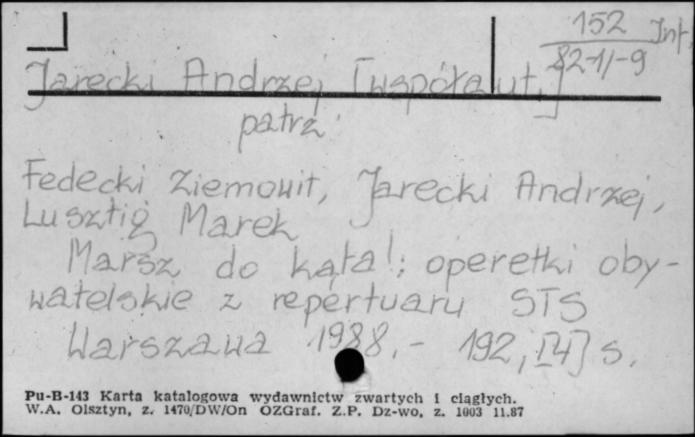 152 Inf.
82-1/-9
Jarecki Andrzej [współaut.]
patrz:
Fedecki Ziemowit, Jarecki Andrzej,
Lusztig Marek
Marsz do kąta!; operetki oby-
watelskie z repertuaru STS
Warszawa 1988.- 192, [4] s.
Pu-B-143 Karta katalogowa wydawnictw zwartych i ciągłych.
W.A. Olsztyn, z. 1470/DW/On OZGraf. Z.P. Dz-wo, z. 1003 11.87